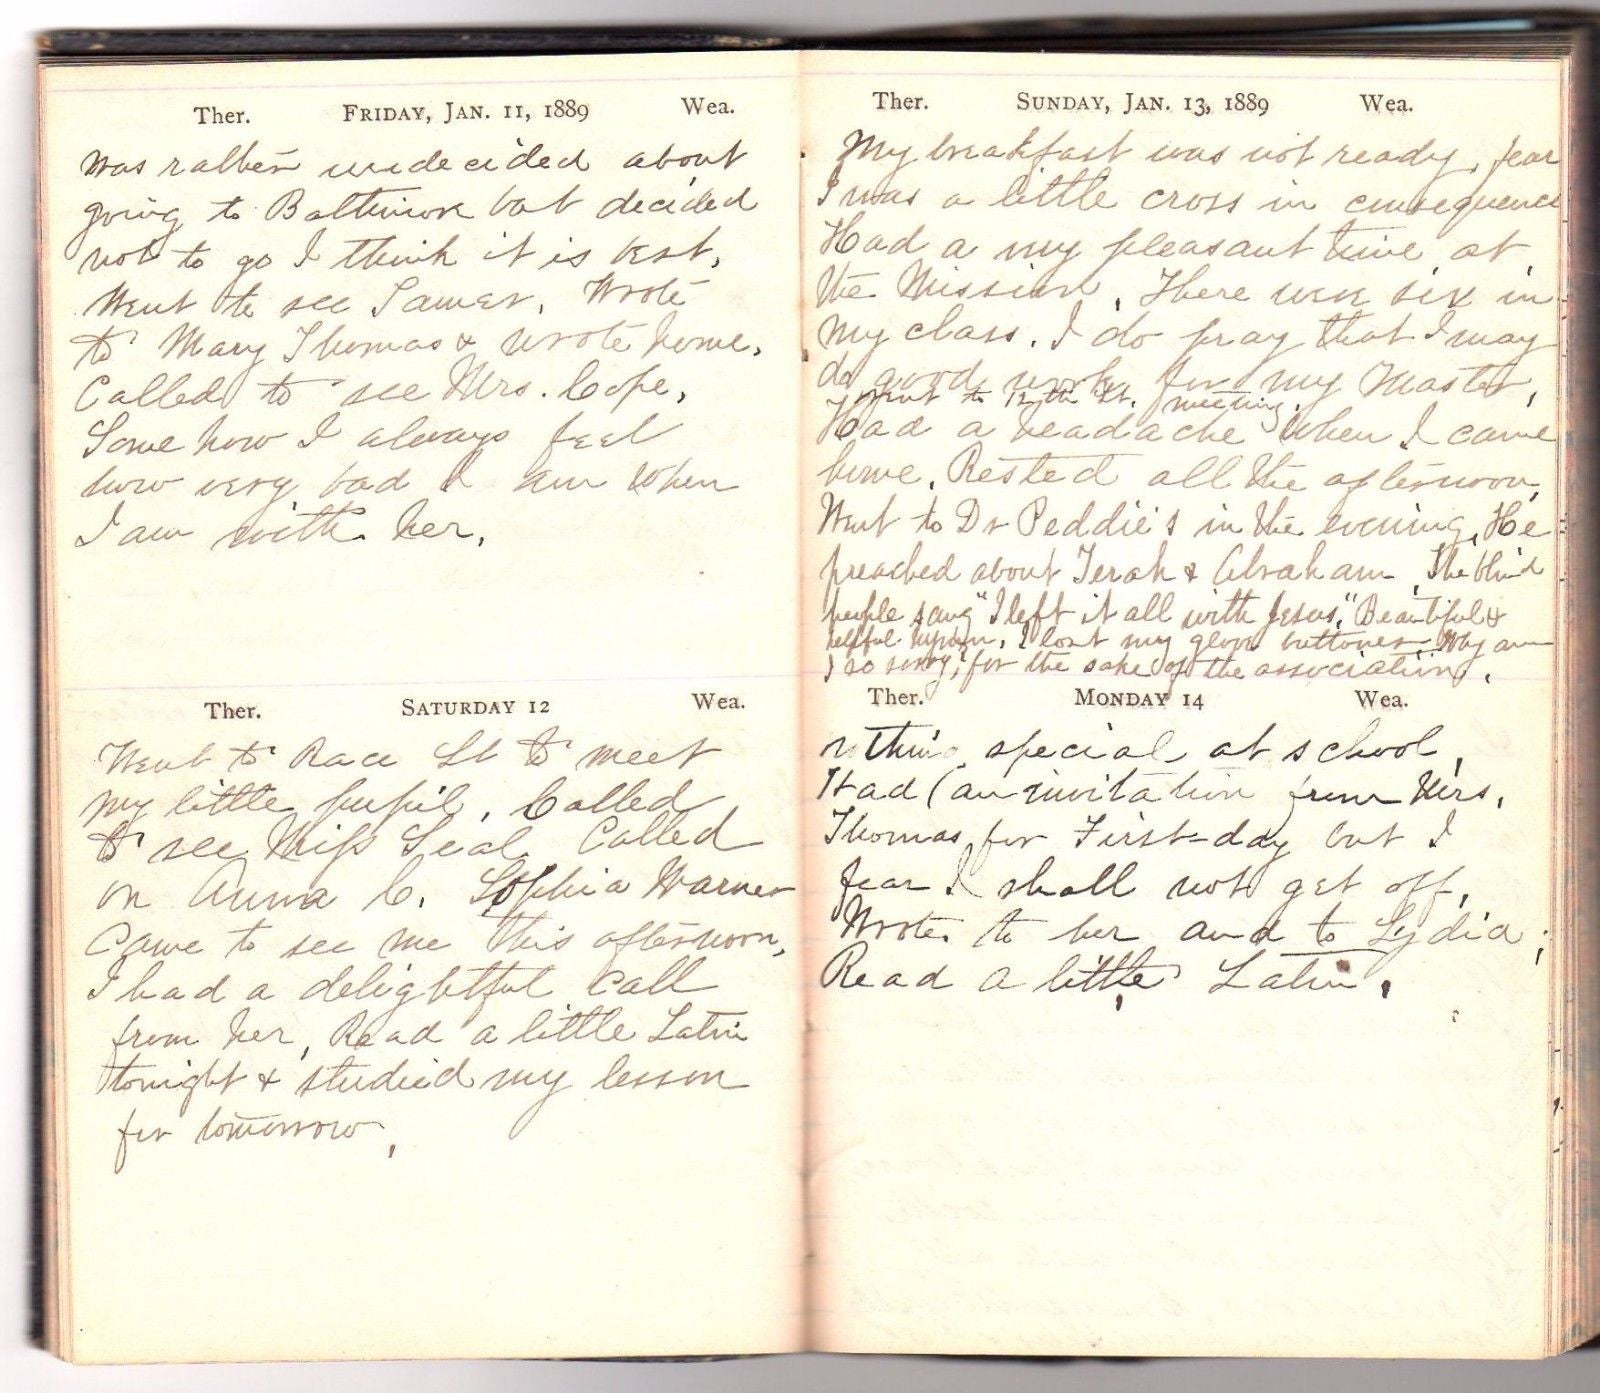 Ther. FRIDAY, JAN. 11, 1889 Wea.
was rather undecided about
going to Baltimore but decided
not to go I think it is best.
Went to see James. Wrote
to Mary Thomas & wrote home.
Called to see Mrs. Cope.
Some how I always feel
how very bad I am when
I am with her.
Ther. SATURDAY 12 Wea.
Went to Race St to meet
my little pupil. Called
to see Miss Seal Called
on Anna C. Sophia Warner
Came to see me this afternoon,
I had a delightful call
from her, Read a little Latin
tonight & studied my lesson
for tomorrow.
Ther. SUNDAY, JAN. 13, 1889 Wea.
My breakfast was not ready, fear
I was a little cross in consequence
Had a my pleasant time at
the Mission. There were six in
my class. I do pray that I may
do good work for my Master.
Went to 12th St. meeting.
Had a headache when I came
home. Rested all the afternoon.
Went to Dr Peddie's in the evening. He
preached about Terah & Abraham. The blind
people sang "I left it all with Jesus." Beautiful &
helpful hymn. I lost my glove buttoner. Why am
I so sorry, for the sake of the association.
Ther. MONDAY 14 Wea.
nothing special at school.
Had (an invitation from Mrs.
Thomas for First-day but I
fear I shall not get off.
Wrote to her and to Lydia.
Read a little Latin.